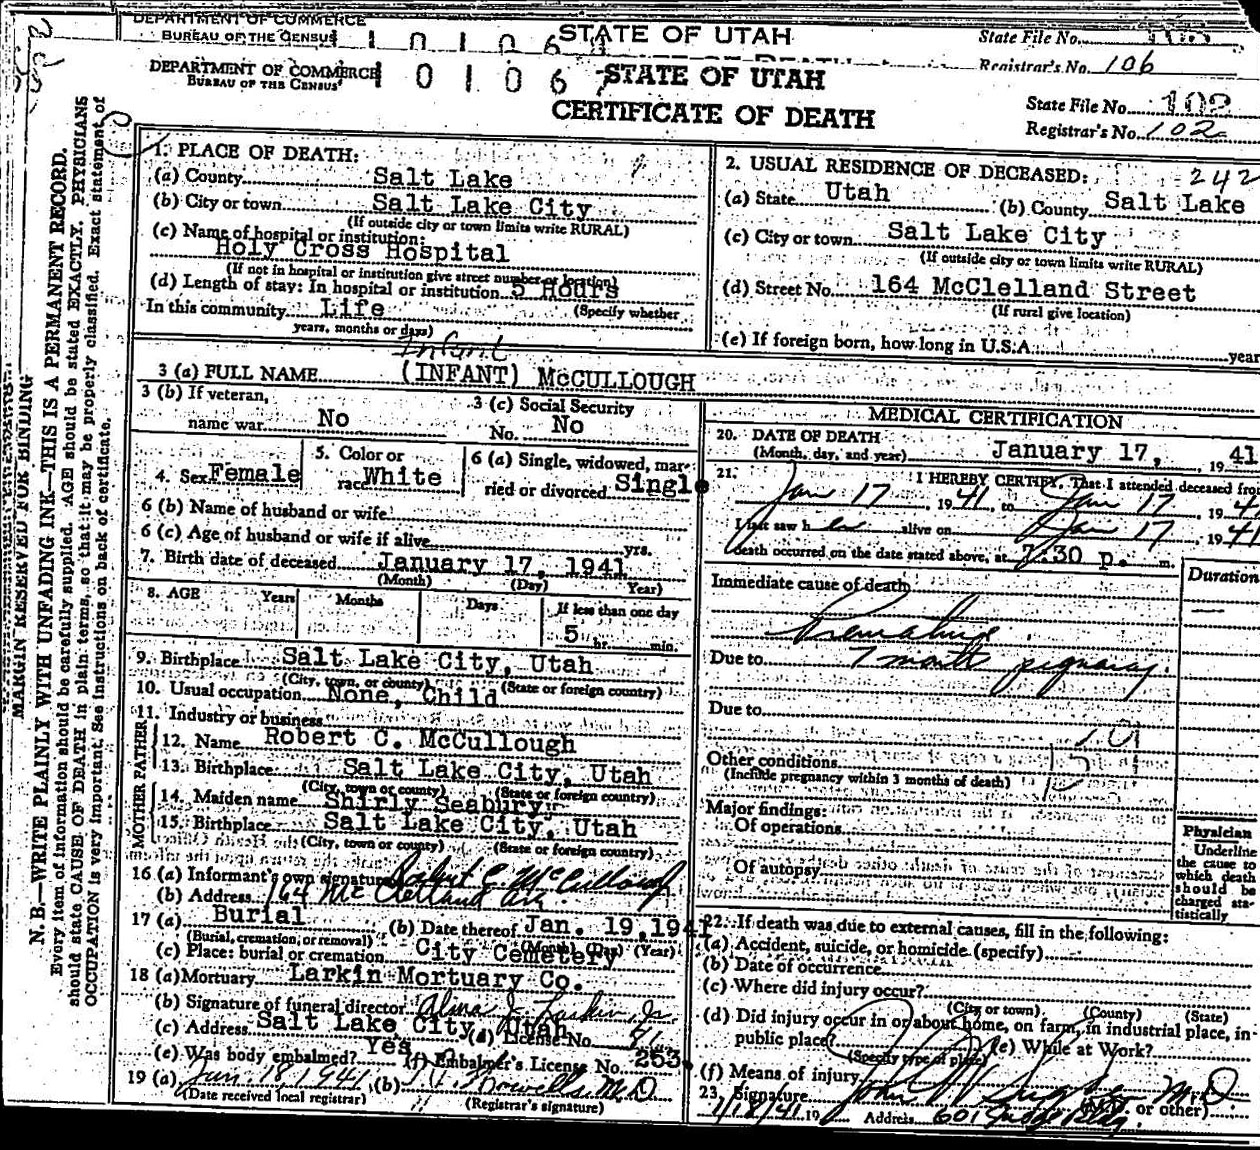 DEPARTMENT OF COMMERCE
BUREAU OF THE CENSUS
STATE OF UTAH
State File No.
Registrar's No. 106
DEPARTMENT OF COMMERCE
BUREAU OF THE CENSUS
1 0 1 0 6 7
STATE OF UTAH
CERTIFICATE OF DEATH
State File No. 102
Registrar's No. 102
MARGIN RESERVED FOR BINDING
N. B.—WRITE PLAINLY WITH UNFADING INK—THIS IS A PERMANENT RECORD.
Every item of information should be carefully supplied. AGE should be stated EXACTLY. PHYSICIANS
should state CAUSE OF DEATH in plain terms, so that it may be properly classified. Exact statement of
OCCUPATION is very important. See instructions on back of certificate.
1. PLACE OF DEATH:
(a) County Salt Lake
(b) City or town Salt Lake City
(If outside city or town limits write RURAL)
(c) Name of hospital or institution:
Holy Cross Hospital
(If not in hospital or institution give street number or location)
(d) Length of stay: In hospital or institution 5 Hours
In this community Life (Specify whether
years, months or days)
2. USUAL RESIDENCE OF DECEASED: 242
(a) State Utah (b) County Salt Lake
(c) City or town Salt Lake City
(If outside city or town limits write RURAL)
(d) Street No. 164 McClelland Street
(If rural give location)
(e) If foreign born, how long in U.S.A. year
Infant
3 (a) FULL NAME (INFANT) McCULLOUGH
3 (b) If veteran,
name war No
3 (c) Social Security
No. No
4. Sex Female
5. Color or
race White
6 (a) Single, widowed, mar-
ried or divorced Single
6 (b) Name of husband or wife
6 (c) Age of husband or wife if alive yrs.
7. Birth date of deceased January 17, 1941
(Month) (Day) Year)
8. AGE Years Months Days If less than one day
5 hr. min.
9. Birthplace Salt Lake City, Utah
(City, town, or county) (State or foreign country)
10. Usual occupation None, Child
11. Industry or business
FATHER
12. Name Robert C. McCullough
13. Birthplace Salt Lake City, Utah
(City, town or county) (State or foreign country)
MOTHER
14. Maiden name Shirly Seabury
15. Birthplace Salt Lake City, Utah
(City, town or county) (State or foreign country)
16 (a) Informant's own signature Robert C. McCullough
(b) Address 164 McClelland Av.
17 (a) Burial (b) Date thereof Jan. 19, 1941
(Burial, cremation, or removal) (Month) (Day) (Year)
(c) Place: burial or cremation City Cemetery
18 (a) Mortuary Larkin Mortuary Co.
(b) Signature of funeral director Alma J. Larkin Jr.
(c) Address Salt Lake City, Utah (d) License No. 81
(e) Was body embalmed? Yes (f) Embalmer's License No. 253
19 (a) Jan. 18, 1941 (b) M.D
(Date received local registrar) (Registrar's signature)
MEDICAL CERTIFICATION
20. DATE OF DEATH
(Month, day, and year) January 17, 1941
21. I HEREBY CERTIFY, That I attended deceased from
Jan 17, 1941, to Jan 17, 1941
I last saw her alive on Jan 17, 1941
death occurred on the date stated above, at 7:30 p. m.
Immediate cause of death
Duration
Premature
Due to 7 month pregnancy
Due to
Other conditions
(Include pregnancy within 3 months of death)
Major findings:
Of operations
Of autopsy
Physician
Underline
the cause to
which death
should be
charged sta-
tistically
22. If death was due to external causes, fill in the following:
(a) Accident, suicide, or homicide (specify)
(b) Date of occurrence
(c) Where did injury occur?
(City or town) (County) (State)
(d) Did injury occur in or about home, on farm, in industrial place, in
public place? (e) While at Work?
(Specify type of place)
(f) Means of injury
23. Signature John M.D
(M.D. or other)
1/18/41 19 Address 601 Judge Bldg.